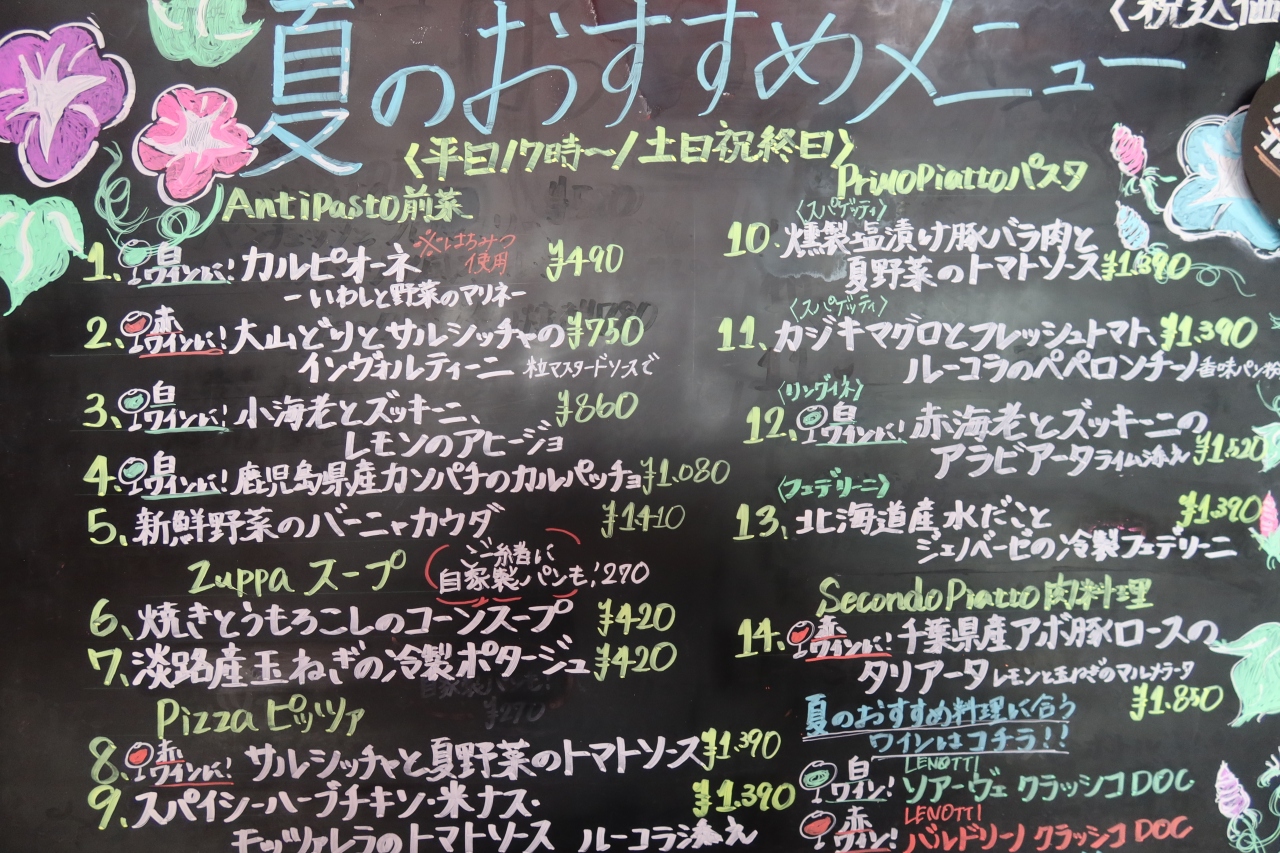 〈税込価
夏のおすすめメニュー
〈平日17時～/土日祝終日〉
Antipasto前菜
1、白ワインに!カルピオーネ ※はちみつ使用 ¥490
-いわしと野菜のマリネ-
2、赤ワインに!大山どりとサルシッチャの ¥750
インヴォルティーニ 粒マスタードソースで
3、白ワインに!小海老とズッキーニ、 ¥860
レモンのアヒージョ
4、白ワインに!鹿児島県産カンパチのカルパッチョ ¥1.080
5、新鮮野菜のバーニャカウダ ¥1410
Zuppa スープ
ご一緒に
自家製パンも!270
6、焼きとうもろこしのコーンスープ ¥420
7、淡路産玉ねぎの冷製ポタージュ ¥420
Pizza ピッツァ
8、赤ワインに!サルシッチャと夏野菜のトマトソース ¥1.390
9、スパイシーハーブチキン・米ナス・ ¥1.390
モッツァレラのトマトソース ルーコラ添え
PrimoPiattoパスタ
〈スパゲッティ〉
10、燻製塩漬け豚バラ肉と
夏野菜のトマトソース ¥1.390
〈スパゲッティ〉
11、カジキマグロとフレッシュトマト、 ¥1.390
ルーコラのペペロンチーノ 香味パン粉
〈リングイネ〉
12、白ワインに!赤海老とズッキーニの
アラビアータ ライム添え ¥1.520
〈フェデリーニ〉
13、北海道産水だこと ¥1.390
ジェノベーゼの冷製フェデリーニ
SecondoPiatto 肉料理
14、赤ワインに!千葉県産アボ豚ロースの
タリアータ レモンと玉ねぎのマルメラータ
¥1.850
夏のおすすめ料理に合う
ワインはコチラ!!
LENOTTI
白ワイン!ソアーヴェ クラッシコ DOC
LENOTTI
赤ワイン!バルドリーノ クラッシコ DOC